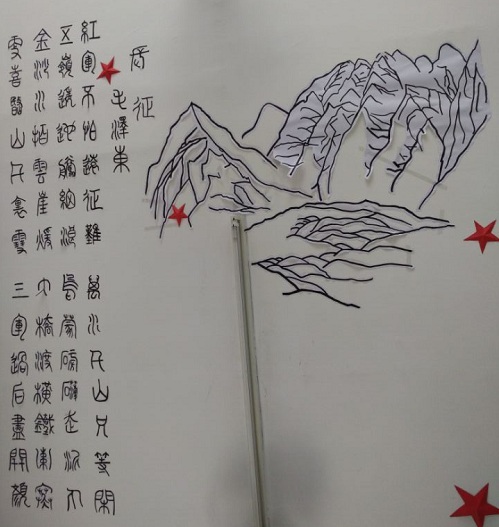 長征
毛澤東
紅軍不怕遠征難
萬水千山只等閑
五嶺逶迤騰細浪
烏蒙磅礴走泥丸
金沙水拍雲崖暖
大橋渡橫鐵索寒
更喜岷山千裏雪
三軍過后盡開顏